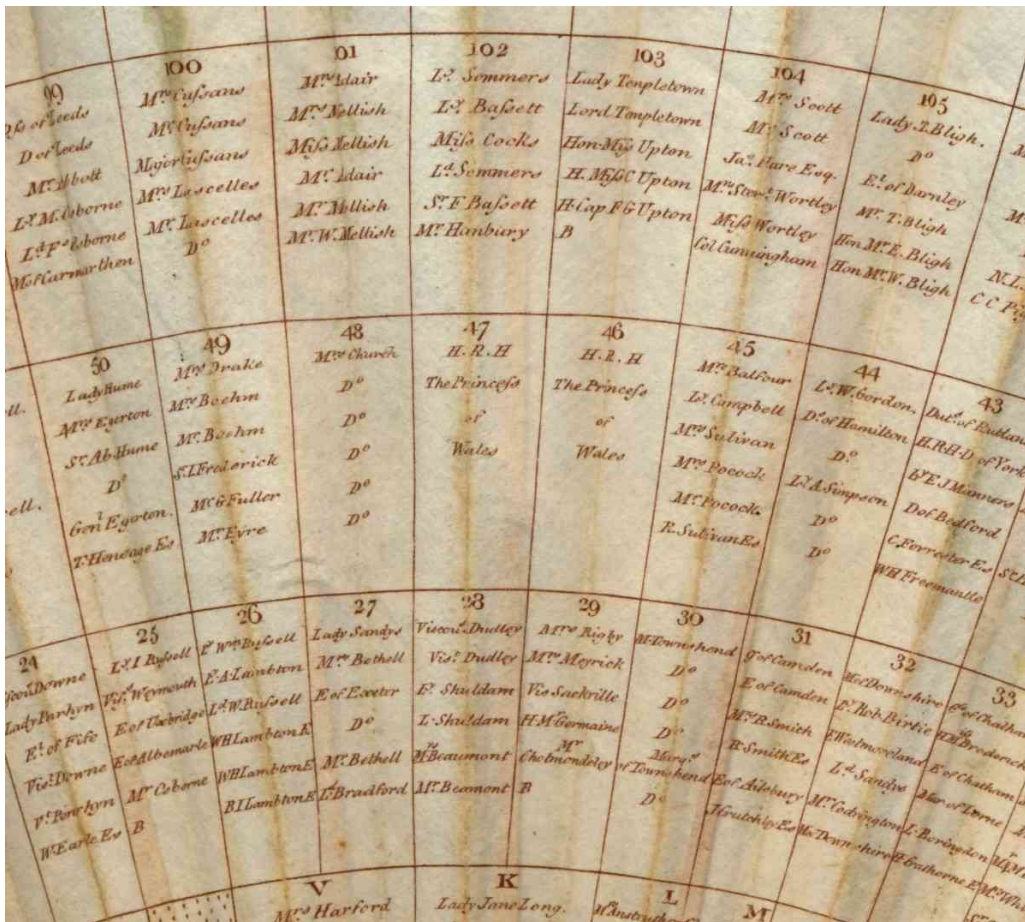 99
of Leeds
D of Leeds
Mr. Abbott
Ly. M. Osborne
Ld. F. Osborne
M of Carmarthen
100
Mrs Cussans
Mr. Cussans
Major Cussans
Mrs Lascelles
Mr. Lascelles
Do
101
Mrs Adair
Mrs Mellish
Miss Mellish
Mr. Adair
Mr. Mellish
Mr. W. Mellish
102
Ly. Sommers
Ly. Bassett
Miss Cocks
Ld. Sommers
Sr. F Bassett
Mr. Hanbury
103
Lady Templetown
Lord Templetown
Hon. Miss Upton
H. Miss C Upton
H. Cap F G Upton
B
104
Mrs Scott
Mr. Scott
Jas. Hare Esq.
Mrs Stewt. Wortley
Miss Wortley
Col Cunningham
105
Lady T. Bligh.
Do
El. of Darnley
Mr. T. Bligh
Hon Mr. E. Bligh
Hon Mr. W. Bligh
50
Lady Hume
Mrs Egerton
Sr. Ab. Hume
Do
Genl Egerton.
T. Heneage Es
49
Mrs Drake
Mrs Boehm
Mr. Boehm
Sr. I. Frederick
Mr. G Fuller
Mr. Eyre
48
Mrs Church
Do
Do
Do
Do
Do
47
H. R. H
The Princess
of
Wales
46
H. R. H
The Princess
of
Wales
45
Mrs Balfour
Ly. Campbell
Mrs Sulivan
Mrs Pocock
Mr. Pocock.
R. Sulivan Es
44
Ly. W. Gordon.
Ds. of Hamilton
Do.
Ly. A Simpson
Do
Do
43
Duts. of Rutland
H.R.H. D of York
Ly. E. J Manners
D of Bedford
C. Forrester Es
W H Freemantle
24
Downe
Lady Parhyn
El. of Fife
Vist. Downe
W. Earle Es
25
Ly. I Russell
Viss. Weymouth
E of Uxbridge
E of Albemarle
Mr Osborne
B
26
Ly. Wm Russell
F. A. Lambton
Ld. W. Russell
W H Lambton E
W H Lambton E
B I Lambton E
27
Lady Sandys
Mrs Bethell
E of Exeter
Do
Mr. Bethell
Ld. Bradford
28
Viscous. Dudley
Vist. Dudley
Ly. Shuldam
L. Shuldam
Mrs Beaumont
Mr. Beamont
29
Mrs Rigby
Mrs Meyrick
Vis Sackville
H Mr. Germaine
Mr
Cholmondeley
B
30
M. Townshend
Do
Do
Do
Marqs.
of Townshend
Do
31
Cs of Camden
E of Camden
Mrs R Smith
R. Smith Es
E of Ailsbury
J Crutchley Es
32
Mss Downshire
Ly. Rob. Birtie
E Westmoreland
Ld. Sandys
Mr. Codrington
Ms. Downshire
33
Broderick
E of Chatham
Mar of Lorne
L. Boringdon
V
Mrs Harford
K
Lady Jane Long.
L
M